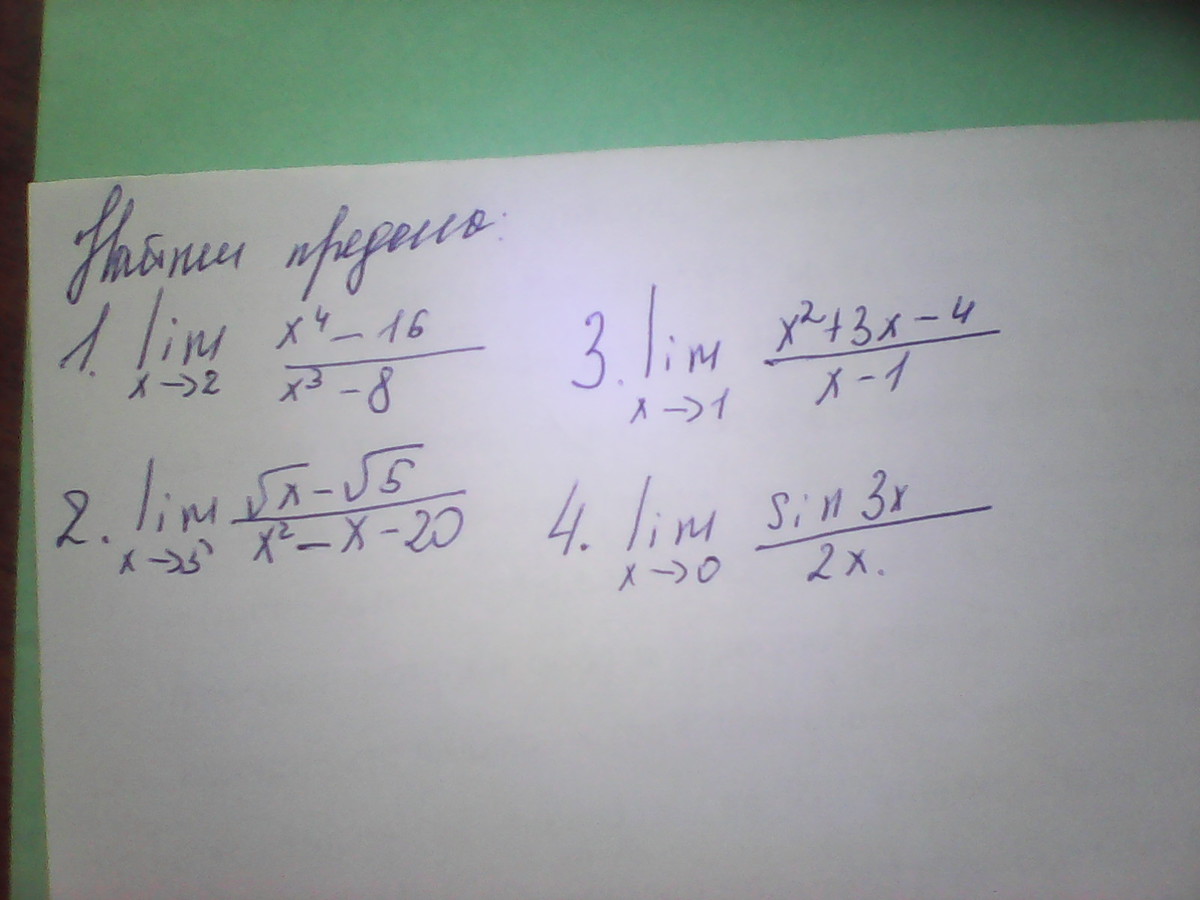 Найти пределы:
1. lim x→2 (x⁴ – 16)/(x³ – 8)
3. lim x→1 (x² + 3x – 4)/(x – 1)
2. lim x→5 (√x – √5)/(x² – x – 20)
4. lim x→0 sin 3x/2x.